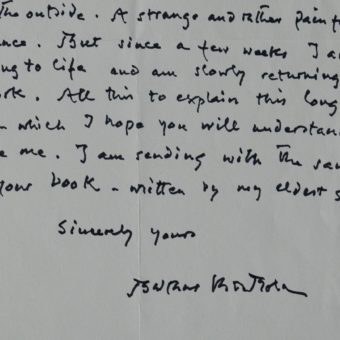 The outside. A strange and rather painf
nce. But since a few weeks I a
ng to life and am slowly returning
ork. All this to explain this long
n which I hope you will understan
e me. I am sending with the sam
your book - written by my eldest s
Sincerely yours